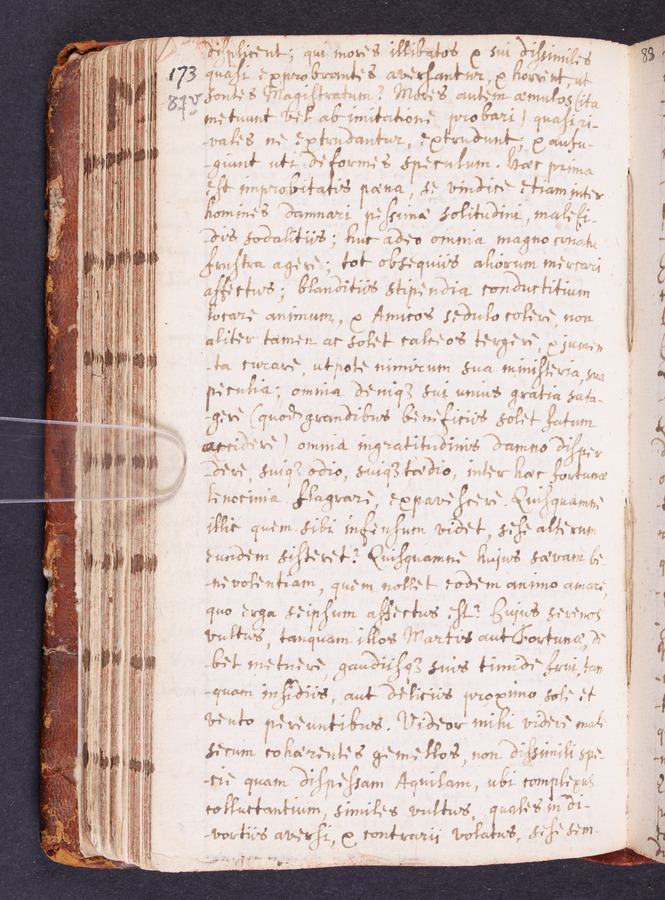 displicent; qui mores illibatos & sui dissimiles
173 quasi exprobrantes aversantur, & horrent, ut
87v sontes Magistratum? Mores autem æmulos (ita
metuunt vel ab imitatione probari) quasi ri-
-vales ne extrudantur, extrudunt, & aufu-
-giunt uti deformes speculum. Hæc prima
est improbitatis pæna, se vindice etiam inter
homines damnari pessimæ solitudini, malefi-
-dis sodalitiis; huc adeo omnia magno conatu
frustra agere; tot obsequiis aliorum mercari
affectus; blanditiis stipendia conductitium
locare animum, & Amicos sedulo colere, non
aliter tamen ac solet calceos tergere, & jumen
-ta curare, utpote nimirum sua ministeria, sua
peculia; omnia deniqꝫ sui unius gratia sata-
-gere (quod grandibus beneficiis solet fatum
accidere) omnia ingratitudinis damno disper
-dere, suiqꝫ odio, suiqꝫ tædio, inter hæc fortunæ
lenocinia flagrare, expavescere. Quisquamne
illic quem sibi infensum videt, sese alterum
eundem sisteret? Quisquamne hujus sævam be-
-nevolentiam, quem nollet eodem animo amare,
quo erga seipsum affectus est? Hujus serenos
vultus, tanquam illos Martis aut Fortunæ, de
-bet metuere, gaudiisqꝫ suis timide frui, tan
-quam insidiis, aut deliciis proximo sole et
vento pereuntibus. Videor mihi videre male
secum cohærentes gemellos, non dissimili spe-
-cie quam dispessam Aquilam, ubi complexus
colluctantium, similes vultus, quales in di-
-vortiis aversi, & contrarii volatus, sese sem-
88